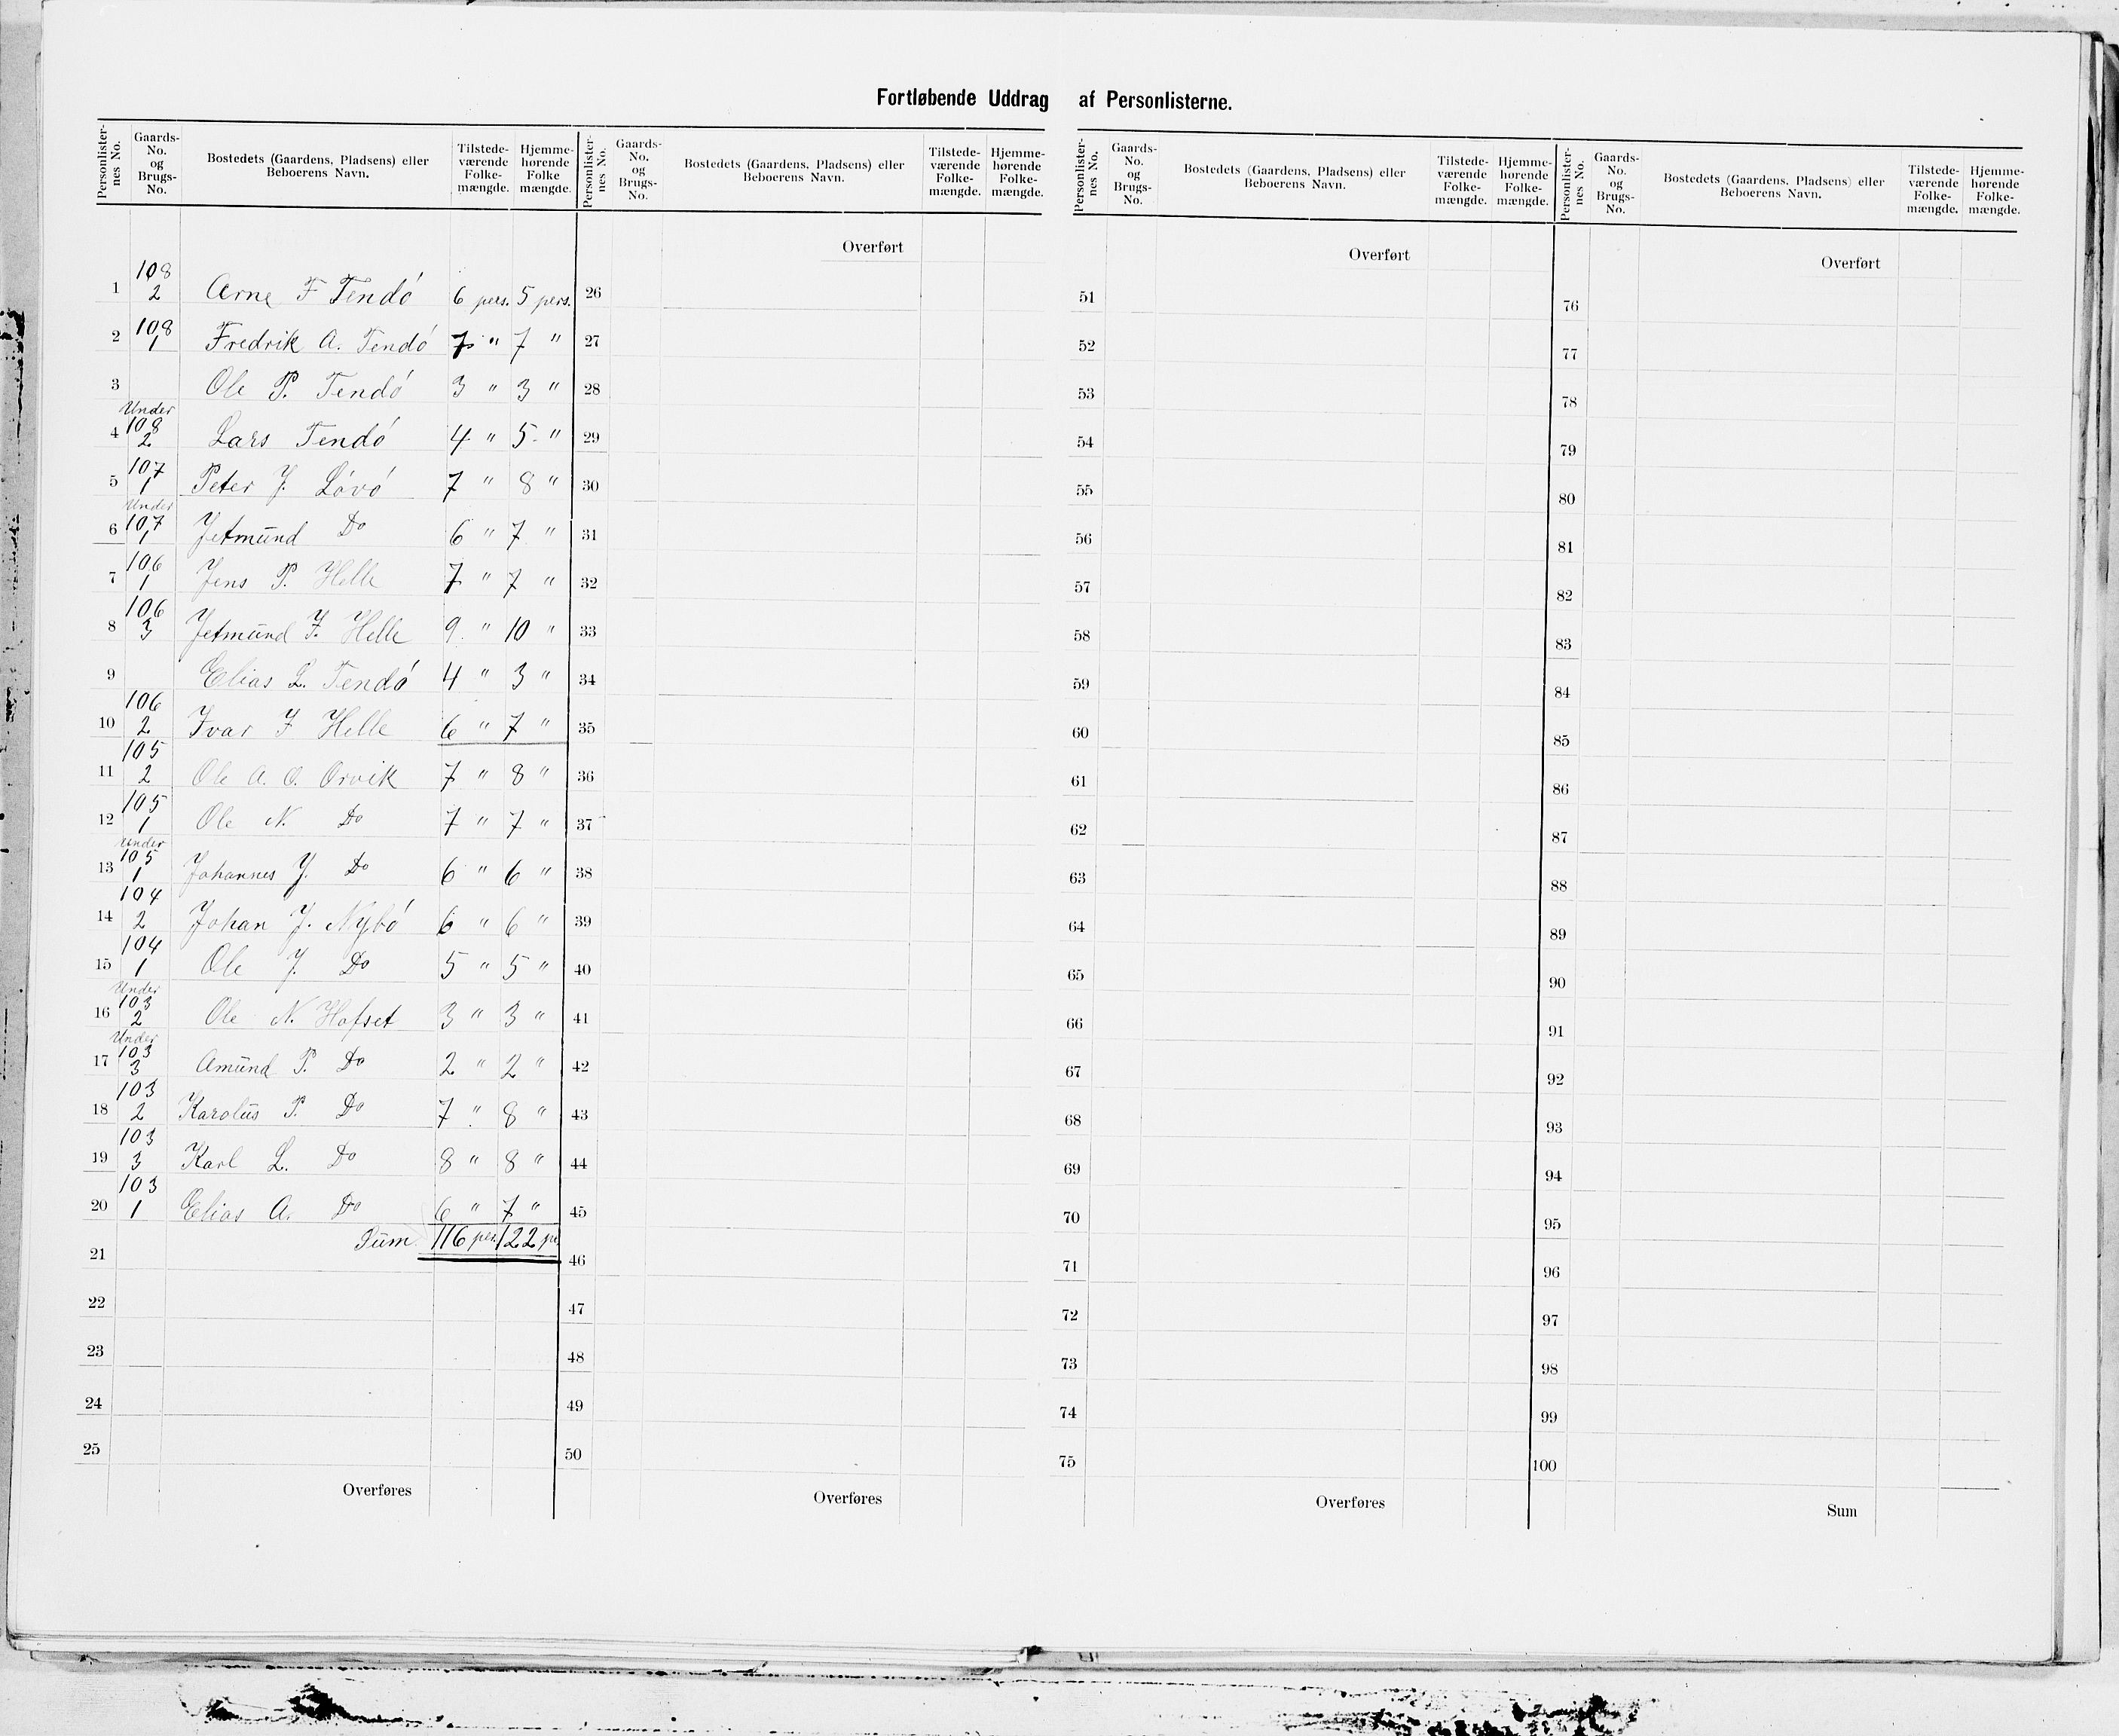 Fortløbende Uddrag af Personlisterne.
Personlister-nes No. Gaards-No. og Brugs-No. Bostedets (Gaardens, Pladsens) eller Beboerens Navn. Tilstede-værende Folke-mængde. Hjemme-hørende Folke mængde.
Personlister-nes No. Gaards-No. og Brugs-No. Bostedets (Gaardens, Pladsens) eller Beboerens Navn. Tilstede-værende Folke-mængde. Hjemme-hørende Folke-mængde.
Personlister-nes No. Gaards-No. og Brugs-No. Bostedets (Gaardens, Pladsens) eller Beboerens Navn. Tilstede-værende Folke-mængde. Hjemme-hørende Folke-mængde.
Personlister-nes No. Gaards-No. og Brugs-No. Bostedets (Gaardens, Pladsens) eller Beboerens Navn. Tilstede-værende Folke-mængde. Hjemme-hørende Folke-mængde.
1 108 2 Arne F Tendó 6 pers. 5 pers.
2 108 1 Fredrik A. Tendó 7 " 7 "
3 Ole P. Tendó 3 " 3 "
4 Under 108 2 Lars Tendó 4 " 5 "
5 107 1 Peter J. Lóvó 7 " 8 "
6 Under 107 1 Jetmund Do 6 " 7 "
7 106 1 Jens P. Helle 7 " 7 "
8 106 3 Jetmund F. Helle 9 " 10 "
9 Elias L. Tendó 4 " 3 "
10 106 2 Ivar F Helle 6 " 7 "
11 105 2 Ole A. O. Orvik 7 " 8 "
12 105 1 Ole N. Do 7 " 7 "
13 Under 105 1 Johannes J. Do 6 " 6 "
14 104 2 Johan J. Nybó 6 " 6 "
15 104 1 Ole J. Do 5 " 5 "
16 Under 103 2 Ole N. Hofset 3 " 3 "
17 Under 103 3 Amund P. Do 2 " 2 "
18 103 2 Karolus P. Do 7 " 8 "
19 103 3 Karl L. Do 8 " 8 "
20 103 1 Elias A. Do 6 " 7 "
21 Sum 116 per. 122 pe
22
23
24
25
Overføres
Overført
26
27
28
29
30
31
32
33
34
35
36
37
38
39
40
41
42
43
44
45
46
47
48
49
50
Overføres
Overført
51
52
53
54
55
56
57
58
59
60
61
62
63
64
65
66
67
68
69
70
71
72
73
74
75
Overføres
Overført
76
77
78
79
80
81
82
83
84
85
86
87
88
89
90
91
92
93
94
95
96
97
98
99
100
Sum